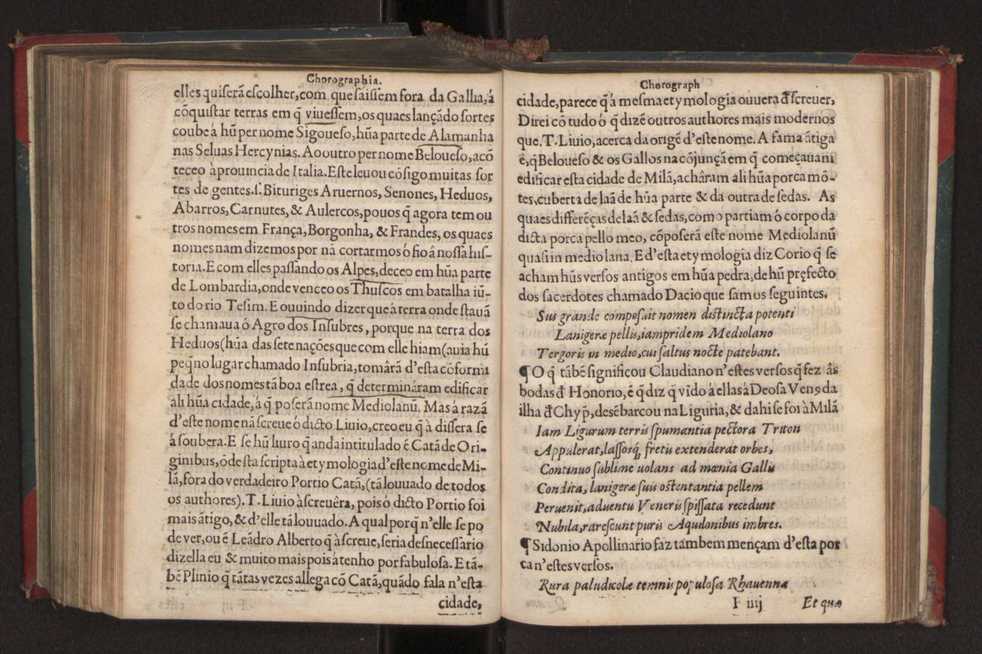 Chorographia.
elles quiserã escolher, com que saissem fora da Gallia, á
cõquistar terras em q̃ viuessem, os quaes lançãdo sortes
coube à hũ per nome Sigoueso, hũa parte de Alamanha
nas Seluas Hercynias. Ao outro per nome Beloueso, acõ
teceo à prouincia de Italia. Este leuou cõsigo muitas sor
tes de gentes .s. Bituriges Aruernos, Senones, Heduos,
Abarros, Carnutes, & Aulercos, pouos q̃ agora tem ou
tros nomes em França, Borgonha, & Frandes, os quaes
nomes nam dizemos por nã cortarmos ó fio â nossa his-
toria. E com elles passando os Alpes, deceo em hũa parte
de Lombardia, onde venceo os Thuscos em batalha iũ-
to do rio Tesim. E ouuindo dizer que à terra onde stauã
se chamaua ó Agro dos Insubres, porque na terra dos
Heduos (hũa das sete nações que com elle hiam (auia hũ
peq̃no lugar chamado Insubria, tomârã d'esta cõformi
dade dos nomes tã boa estrea, q̃ determináram edificar
ali hũa cidade, á q̃ poserã nome Mediolanũ. Mas à razã
d'este nome nã screue ó dicto Liuio, creo eu q̃ à dissera se
á soubera. E se hũ liuro q̃ anda intitulado é Catã de Ori-
ginibus, óde sta scripta à etymologia d'este nome de Mi-
lã, fora do verdadeiro Portio Catã, (tã louuado de todos
os authores). T. Liuio à screuêra, pois ó dicto Portio foi
mais ãtigo, & d'elle tã louuado. A qual porq̃ n'elle se po
de ver, ou é Leãdro Alberto q̃ à screue, seria desnecessario
dizella eu & muito mais pois à tenho por fabulosa. E tã-
bẽ Plinio q̃ tãtas vezes allega cõ Catã, quãdo fala n'esta
cidade,
Chorograph
cidade, parece q̃ â mesma etymologia ouuera đ screuer,
Direi cõ tudo ó q̃ dizẽ outros authores mais modernos
que. T. Liuio, acerca da origẽ d'este nome. A fama ãtiga
é, q̃ Beloueso & os Gallos na cõjunçã em q̃ começauã ni
edificar esta cidade de Milã, achâram ali hũa porca mõ-
tes, cuberta de laã de hũa parte & da outra de sedas. As
quaes differẽças de laã & sedas, como partiam ó corpo da
dicta porca pello meo, cõposerã este nome Mediolanũ
quasi in medio lana. E d'esta etymologia diz Corio q̃ se
acham hũs versos antigos em hũa pedra, de hũ pręfecto
dos sacerdotes chamado Dacio que sam os seguintes.
Sus grande composuit nomen distincta potenti
Lanigeræ pellis, iampridem Mediolano
Tergoris in medio, cui saltus nocte patebant.
¶ O q̃ tãbẽ significou Claudiano n'estes versos q̃ fez âs
bodas đ Honorio, é q̃ diz q̃ vĩdo à ellas â Deosa Ven9 da
ilha đ Chyp̃, desẽbarcou na Liguria, & dahi se foi à Milã
Iam Ligurum terris spumantia pectora Triton
Appulerat, lassosq́, fretis extenderat orbes,
Continuo sublime uolans ad mœnia Gallis
Condita, lanigeræ suis ostentantia pellem
Peruenit, aduentu Veneris spissata recedunt
Nubila, rarescunt puris Aquilonibus imbres.
¶ Sidonio Apollinario faz tambem mençam d'esta por
ca n'estes versos.
Rura paludicolæ temnis populosa Rhauennæ
F iiij
Et quæ